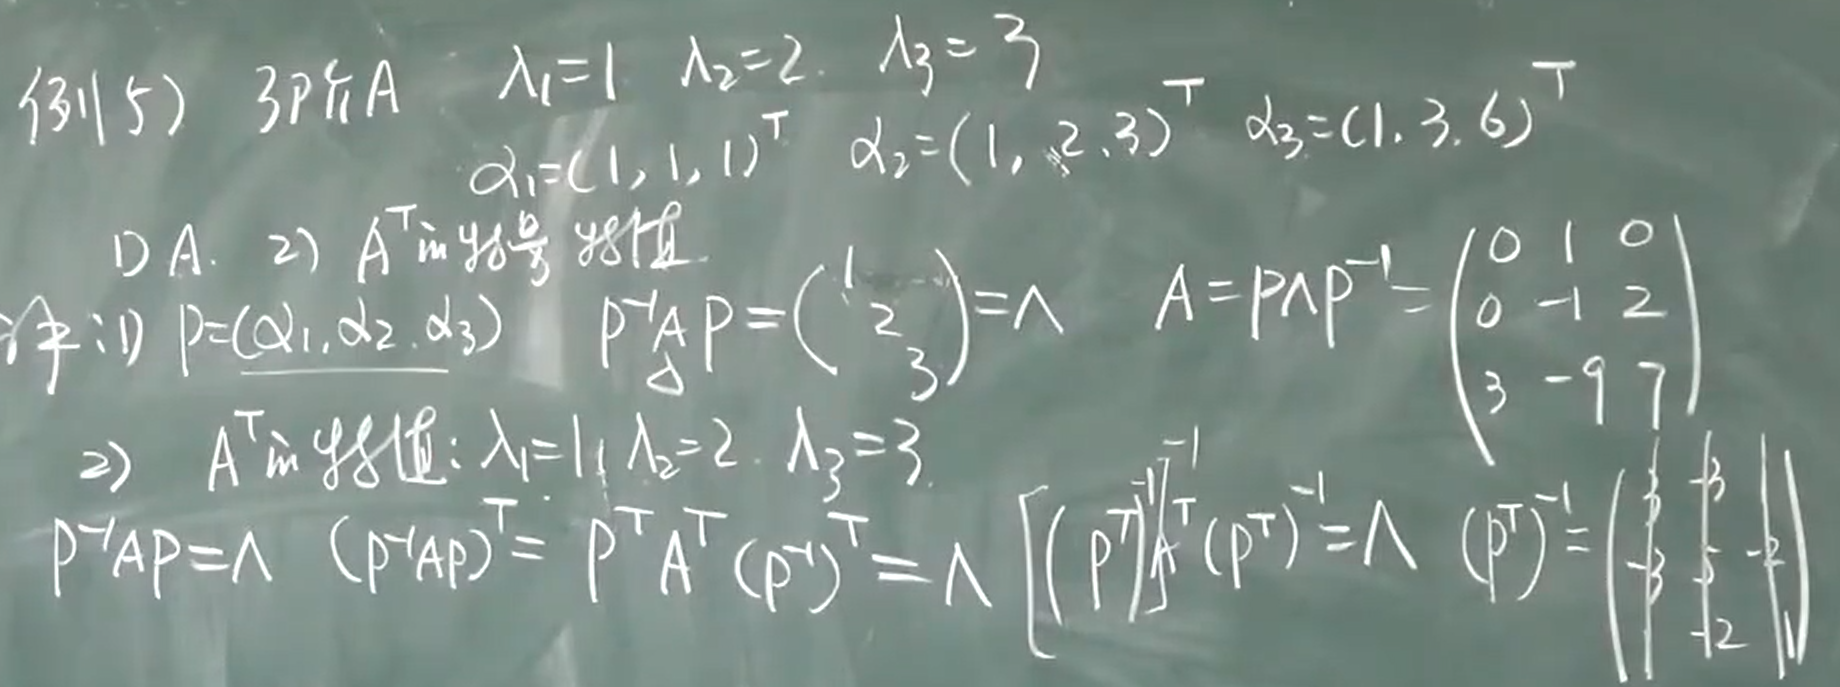 例5) 3阶A λ₁=1 λ₂=2. λ₃=3
α₁=(1,1,1)ᵀ α₂=(1,2,3)ᵀ α₃=(1.3.6)ᵀ
1) A. 2) Aᵀ的特量 特值
解:1) P=(α₁,α₂.α₃) P⁻¹AP=(1 2 3)=Λ A=PΛP⁻¹=(0 1 0
0 -1 2
3 -9 7)
2) Aᵀ的特值:λ₁=1, λ₂=2. λ₃=3.
P⁻¹AP=Λ (P⁻¹AP)ᵀ=PᵀAᵀ(P⁻¹)ᵀ=Λ [(Pᵀ)⁻¹]⁻¹Aᵀ(Pᵀ)⁻¹=Λ (Pᵀ)⁻¹=(3 -3 1
-3 5 -2
1 -2 1)